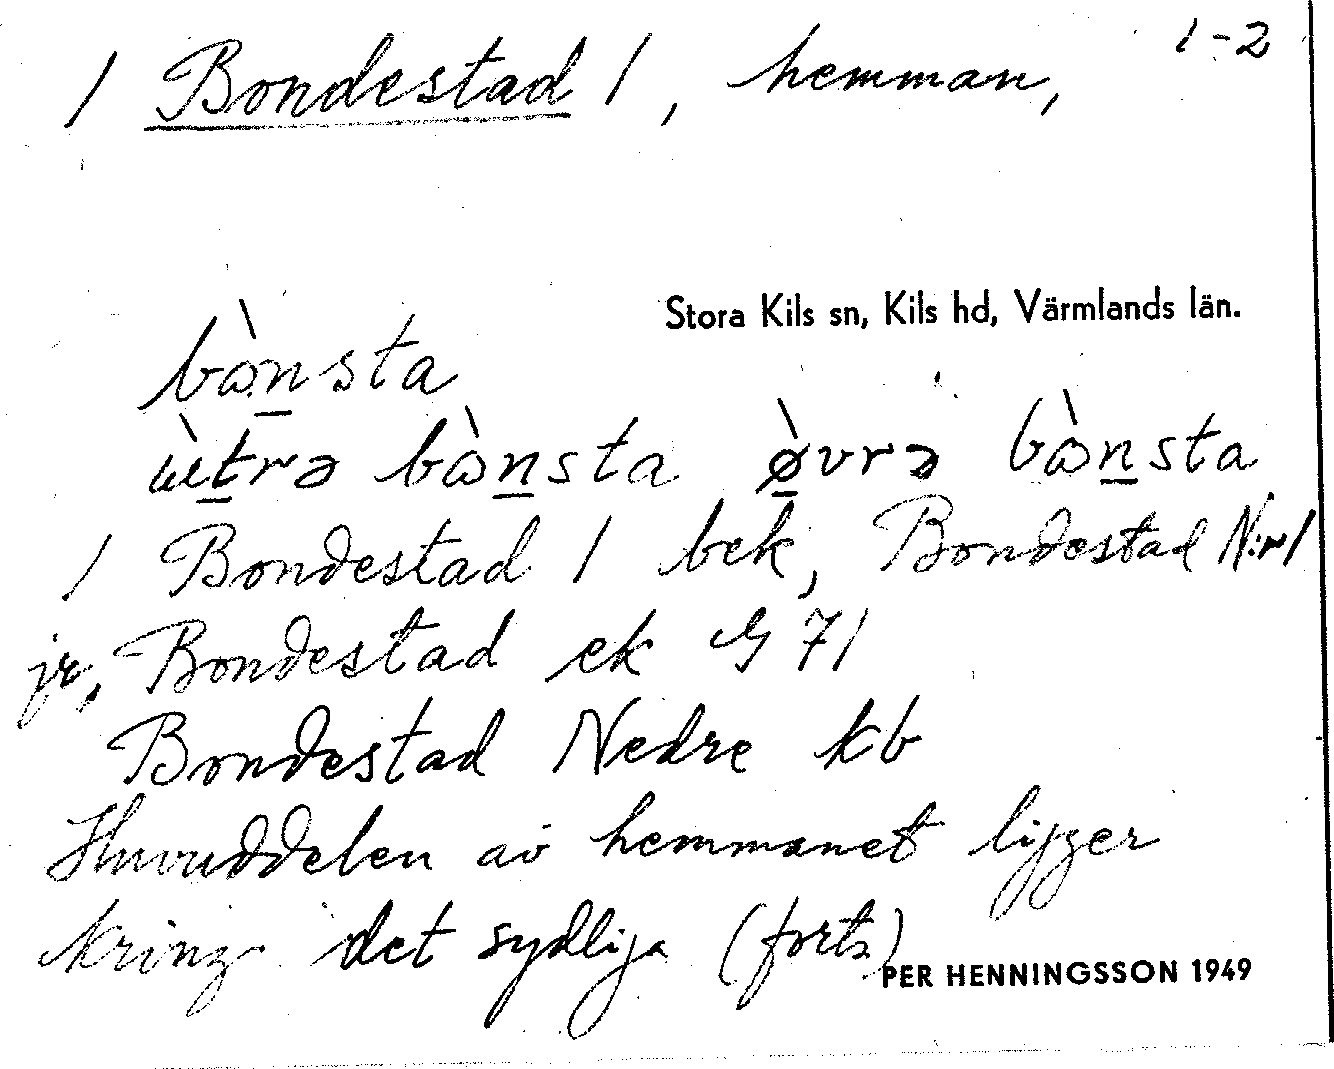 1-2
/ Bondestad /, hemman,
Stora Kils sn, Kils hd, Värmlands län.
bὼn̲sta
ὼt̲rə bὼn̲sta ø̲̀vrə bὼn̲sta
/ Bondestad / bek, Bondestad N:r 1
jr, Bondestad ek G 71
Bondestad Nedre kb
Huvuddelen av hemmanet ligger
kring det sydliga (forts)
PER HENNINGSSON 1949